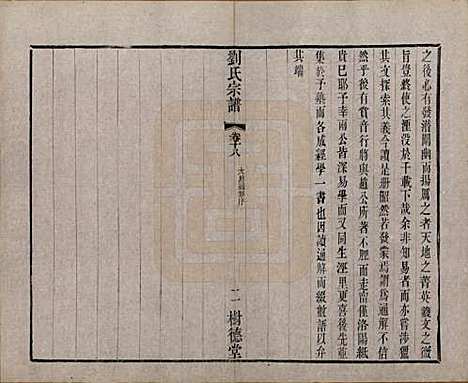 之後必有發潛闡幽而揚厲之者天地之菁英羲文之微
旨豈終使之湮沒於千載下哉余非知易者而亦嘗涉獵
其文探索其義今讀是册昭然若發蒙焉謂為通
然乎後有賞音行將與趙公 並 不脛而走 僅洛陽紙
貴已耶予幸兩公皆深易學而又同生涇里更喜後先薈
集於予義而各成經學一書也因讀通解而綴數語以弁
其端
劉氏宗譜
卷十八
大易通解序
二
樹德堂